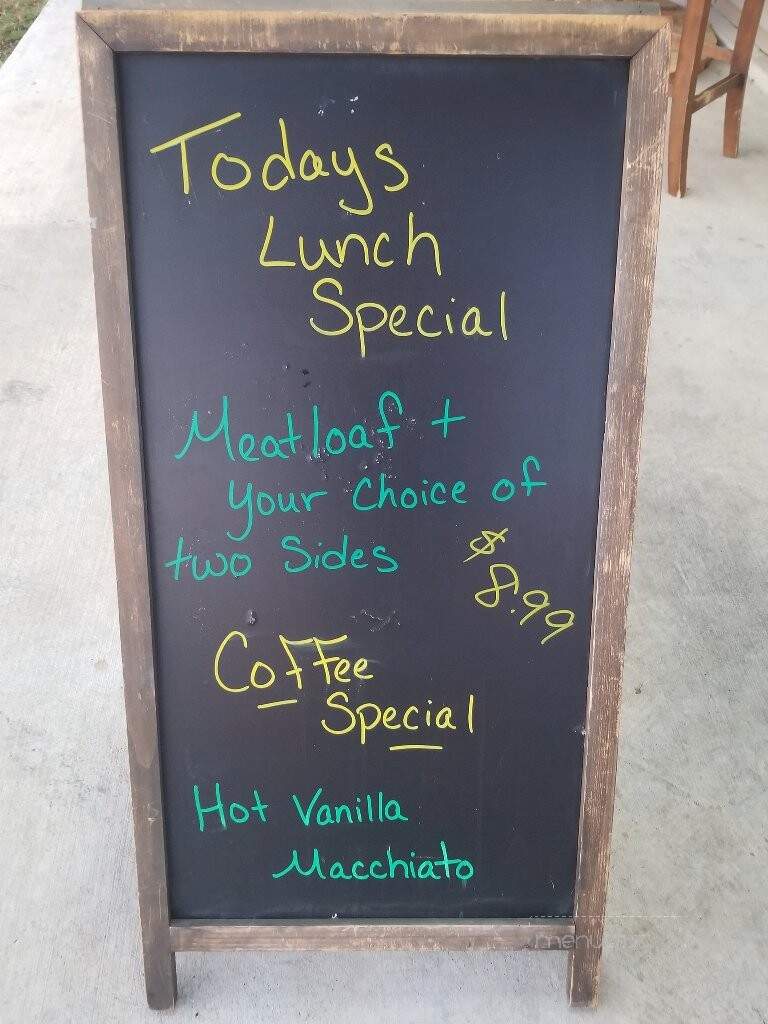 Todays
Lunch
Special
Meatloaf +
your choice of
two Sides
$
8.99
Coffee
Special
Hot Vanilla
Macchiato